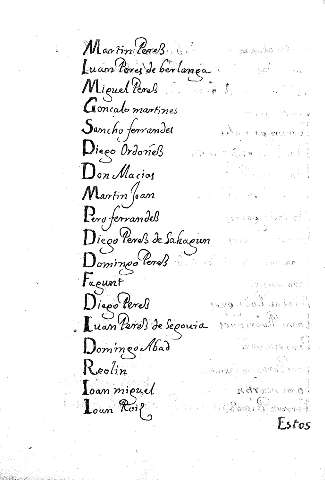 Martin Peres
Iuan Peres de berlanga
Miguel Peres
Goncalo martines
Sancho ferrandes
Diego Ordoñes
Don Macias
Martin Joan
Pero ferrandes
Diego Peres de Sahagun
Domingo Peres
Fagunt
Diago Peres
Iuan Peres de Segouia
Domingo Abad
Reolin
Ioan miguel
Ioan Roiz
Estos